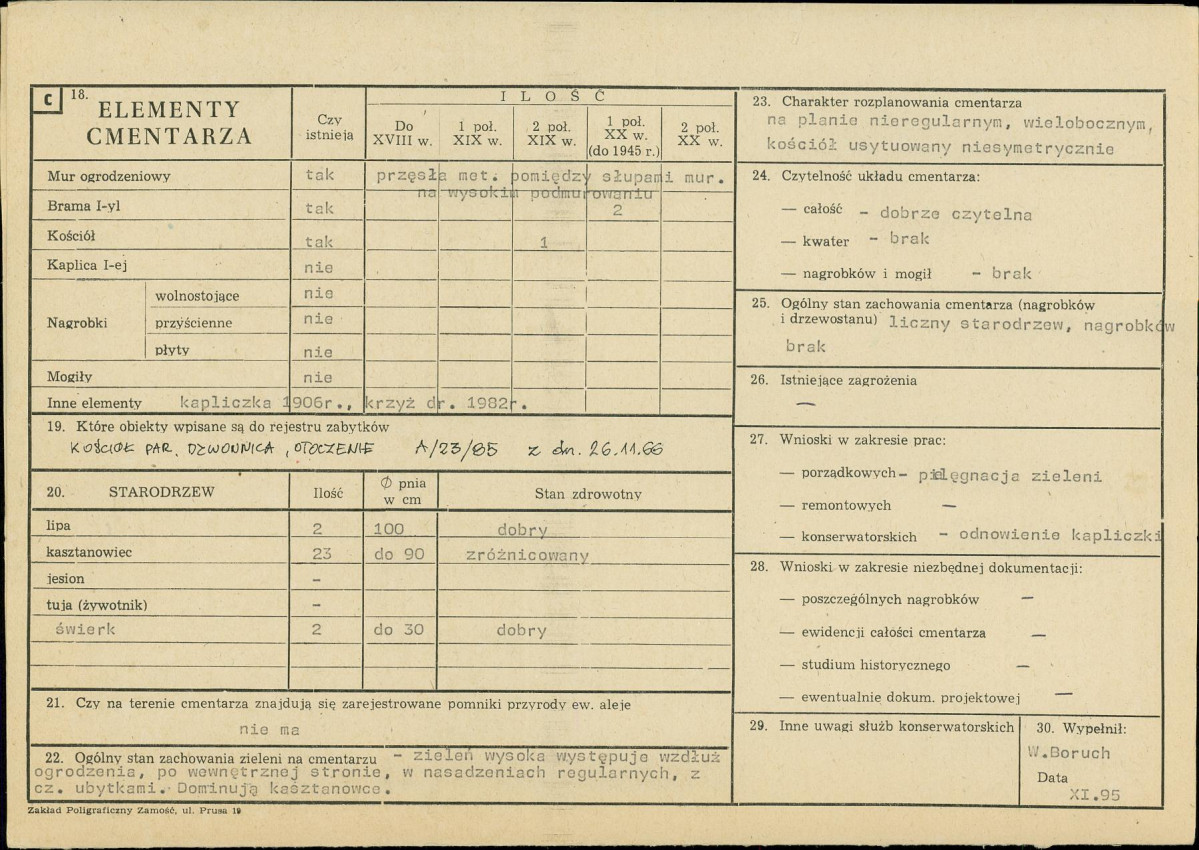 C 18. ELEMENTY CMENTARZA
Czy istnieja
I L O Ś Ć
Do XVIII w.
1 poł. XIX w.
2 poł. XIX w.
1 poł. XX w. (do 1945 r.)
2 poł. XX w.
Mur ogrodzeniowy tak przęsła met. pomiędzy słupami mur.
na wysokim podmurowaniu
Brama I-yl tak 2
Kościół tak 1
Kaplica I-ej nie
Nagrobki
wolnostojące nie
przyścienne nie
płyty nie
Mogiły nie
Inne elementy kapliczka 1906r., krzyż dr. 1982r.
19. Które obiekty wpisane są do rejestru zabytków
KOŚCIÓŁ PAR. DZWONNICA, OTOCZENIE A/23/85 z dn. 26.11.66
20. STARODRZEW Ilość Ø pnia w cm Stan zdrowotny
lipa 2 100 dobry
kasztanowiec 23 do 90 zróżnicowany
jesion -
tuja (żywotnik) -
świerk 2 do 30 dobry
21. Czy na terenie cmentarza znajdują się zarejestrowane pomniki przyrody ew. aleje
nie ma
22. Ogólny stan zachowania zieleni na cmentarzu - zieleń wysoka występuje wzdłuż
ogrodzenia, po wewnętrznej stronie, w nasadzeniach regularnych, z
cz. ubytkami. Dominują kasztanowce.
Zakład Poligraficzny Zamość, ul. Prusa 19
23. Charakter rozplanowania cmentarza
na planie nieregularnym, wielobocznym,
kościół usytuowany niesymetrycznie
24. Czytelność układu cmentarza:
— całość - dobrze czytelna
— kwater - brak
— nagrobków i mogił - brak
25. Ogólny stan zachowania cmentarza (nagrobków
i drzewostanu) liczny starodrzew, nagrobków
brak
26. Istniejące zagrożenia
—
27. Wnioski w zakresie prac:
— porządkowych - pielęgnacja zieleni
— remontowych —
— konserwatorskich - odnowienie kapliczki
28. Wnioski w zakresie niezbędnej dokumentacji:
— poszczególnych nagrobków —
— ewidencji całości cmentarza —
— studium historycznego —
— ewentualnie dokum. projektowej —
29. Inne uwagi służb konserwatorskich
30. Wypełnił:
W.Boruch
Data
XI.95